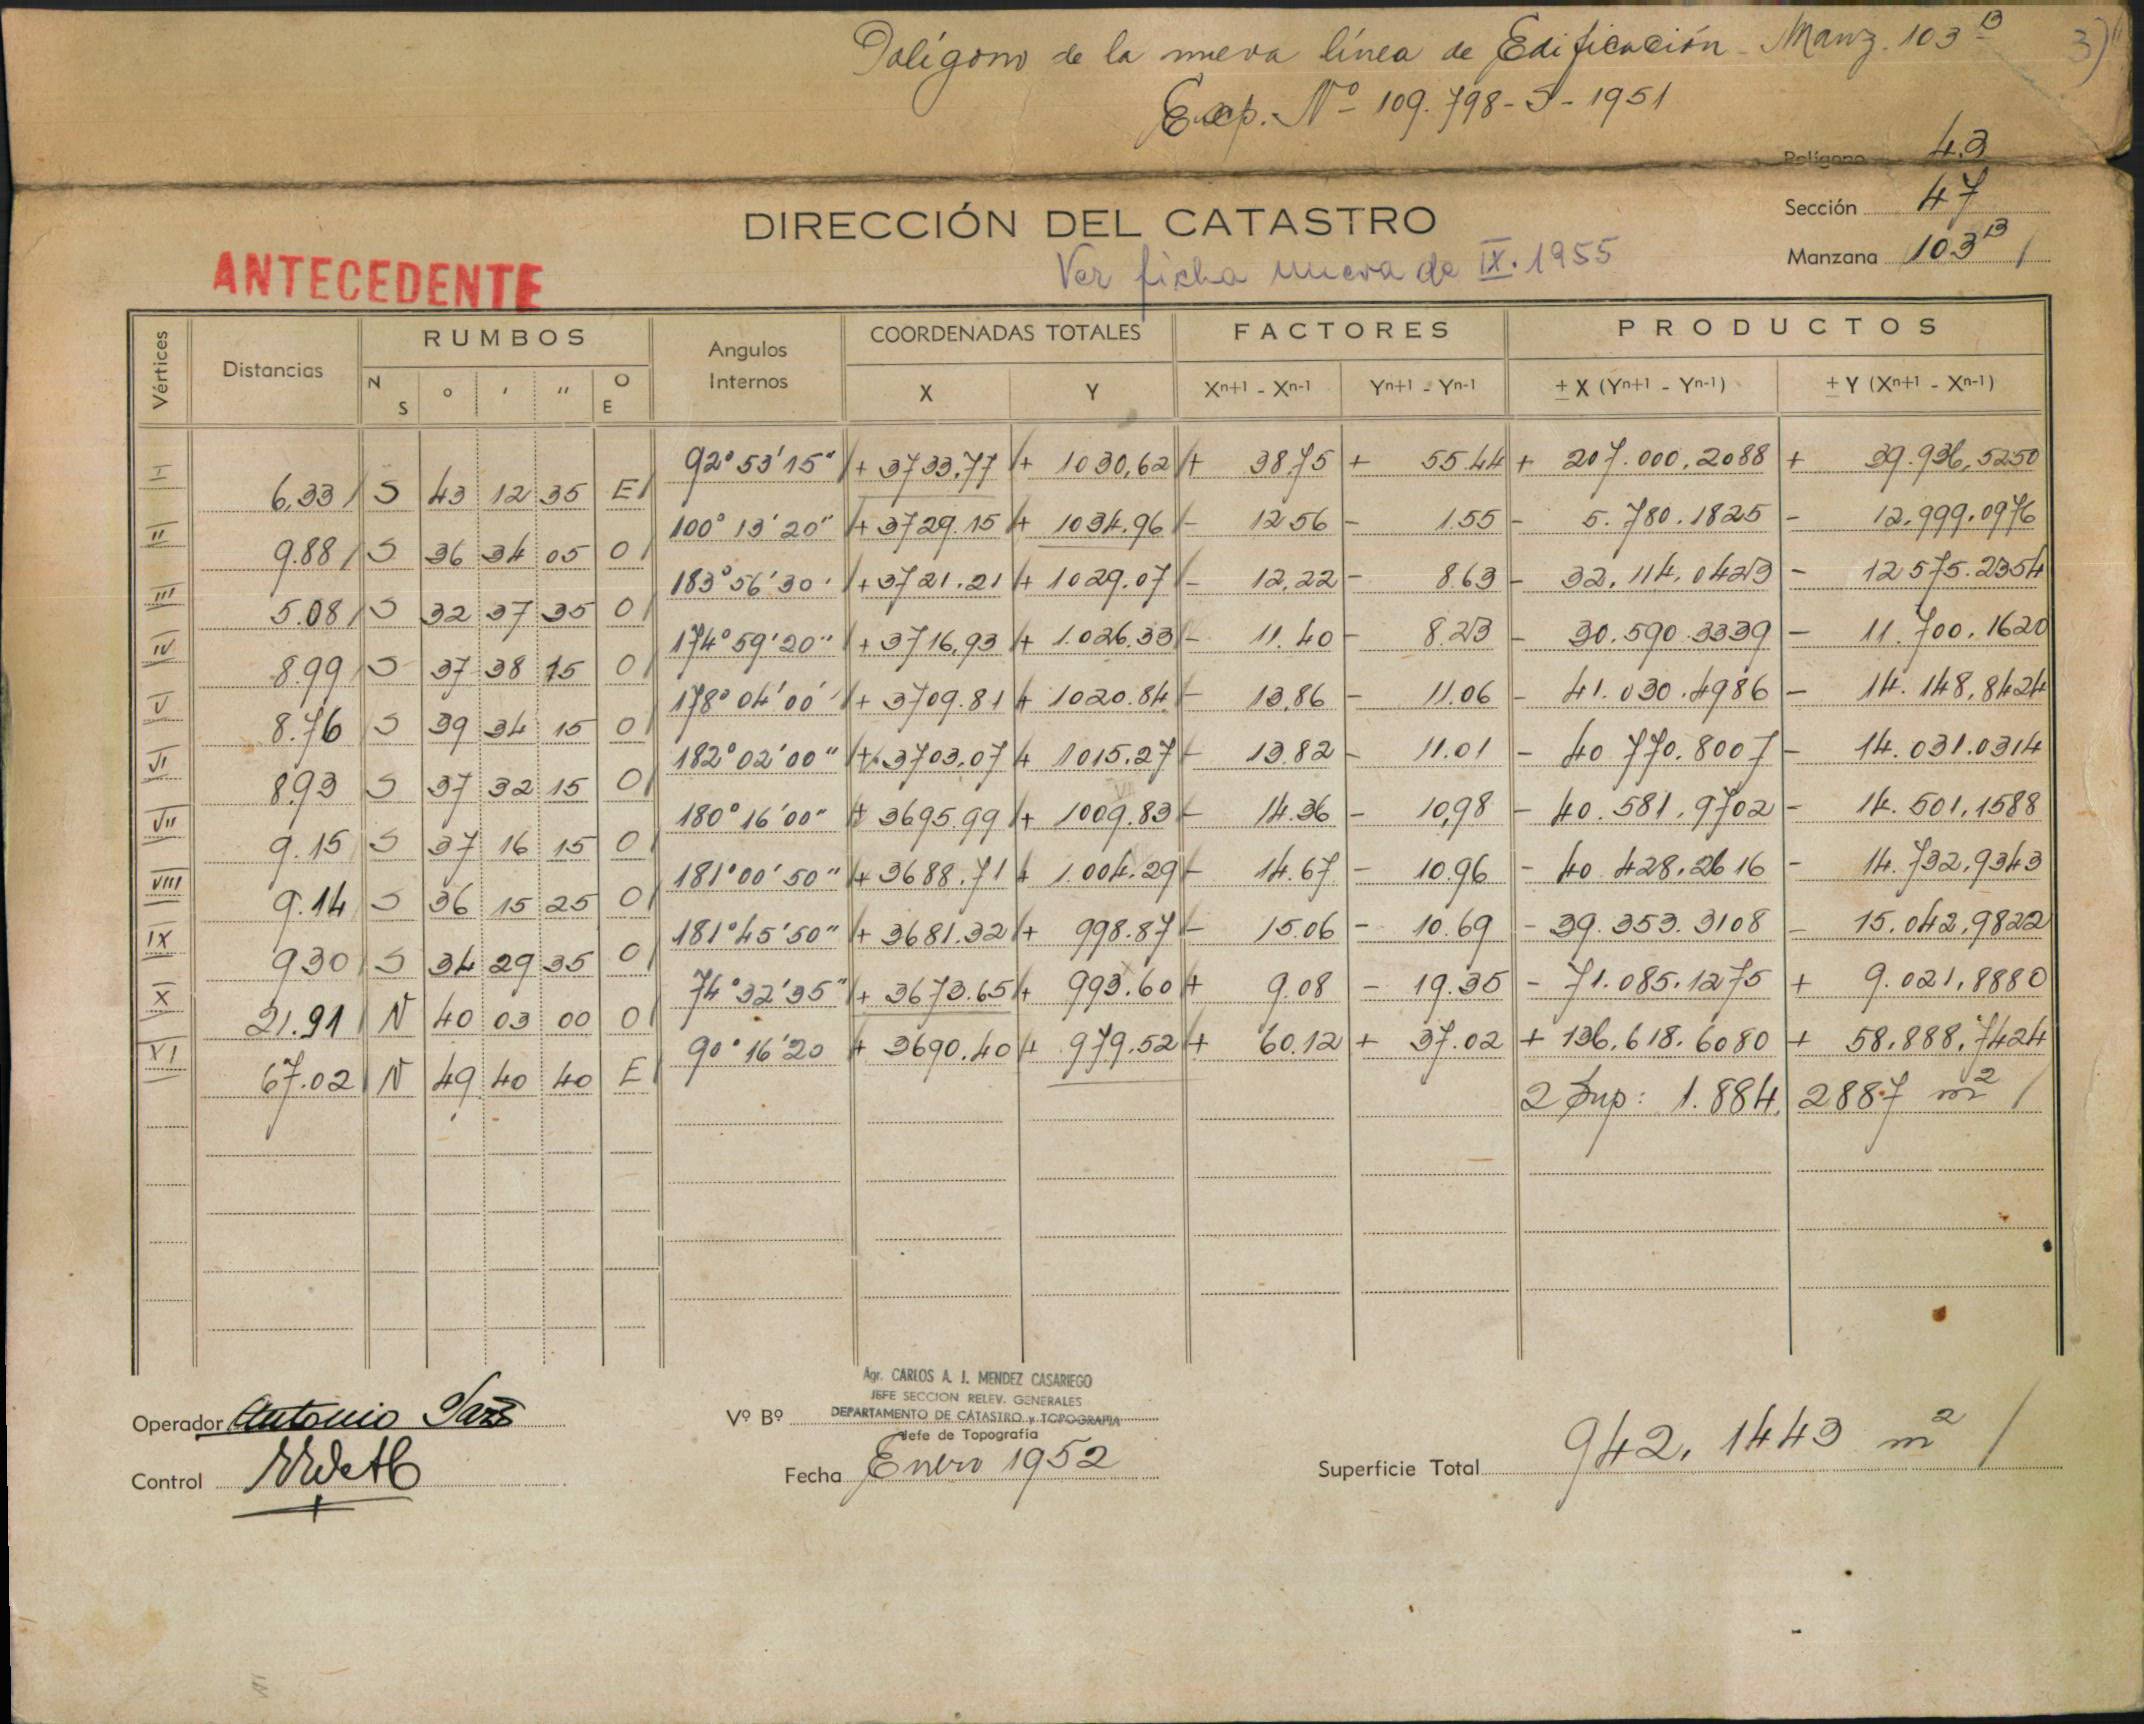 Polígono de la nueva línea de Edificación - Manz. 103 B
3)
Exp. Nº 109.798-S-1951
Polígono 43
Sección 47
Manzana 103 B
DIRECCIÓN DEL CATASTRO
ANTECEDENTE
Ver ficha nueva de IX. 1955
Vértices Distancias RUMBOS Angulos Internos COORDENADAS TOTALES FACTORES PRODUCTOS
N S ° ' " O E X Y Xn+1 - Xn-1 Yn+1 - Yn-1 ± X (Yn+1 - Yn-1) ± Y (Xn+1 - Xn-1)
I 92° 53' 15" + 3733,77 + 1030,62 + 38,75 + 55.44 + 207.000,2088 + 39.936,5250
6,33 S 43 12 35 E
II 100° 13' 20" + 3729.15 + 1034.96 - 12 56 - 1.55 - 5.780.1825 - 12.999,0976
9.88 S 36 34 05 O
III 183° 56' 30' + 3721.21 + 1029.07 - 12,22 - 8.63 - 32.114,0423 - 12 575.2354
5.08 S 32 37 35 O
IV 174° 59' 20" + 3716,93 + 1.026.33 - 11.40 - 8.23 - 30.590.3339 - 11.700.1620
8.99 S 37 38 15 O
V 178° 04' 00' + 3709.81 + 1020.84 - 13,86 - 11.06 - 41.030.4986 - 14.148,8424
8.76 S 39 34 15 O
VI 182° 02' 00" + 3703,07 + 1015.27 - 13.82 - 11.01 - 40 770.8007 - 14.031.0314
893 S 37 32 15 O
VII 180° 16' 00" + 3695.99 + 1009.83 - 14.36 - 10,98 - 40.581.9702 - 14.501,1588
9.15 S 37 16 15 O
VIII 181° 00' 50" + 3688.71 + 1.004.29 - 14.67 - 10.96 - 40 428.2616 - 14.732,9343
9.14 S 36 15 25 O
IX 181° 45' 50" + 3681.32 + 998.87 - 15.06 - 10.69 - 39.353.3108 - 15.042,9822
930 S 34 29 35 O
X 74° 32' 35" + 3673.65 + 993.60 + 9.08 - 19.35 - 71.085.1275 + 9.021,8880
21.91 N 40 03 00 O
XI 90° 16' 20 + 3690.40 + 979.52 + 60.12 + 37.02 + 136.618.6080 + 58.888,7424
67.02 N 49 40 40 E
2 Sup: 1.884, 2887 m2
Agr. CARLOS A. J. MENDEZ CASARIEGO
JEFE SECCION RELEV. GENERALES
Operador Antonio
Vº Bº DEPARTAMENTO DE CATASTRO y TOPOGRAFIA
Jefe de Topografía
Control
Fecha Enero 1952
Superficie Total 942,1443 m2